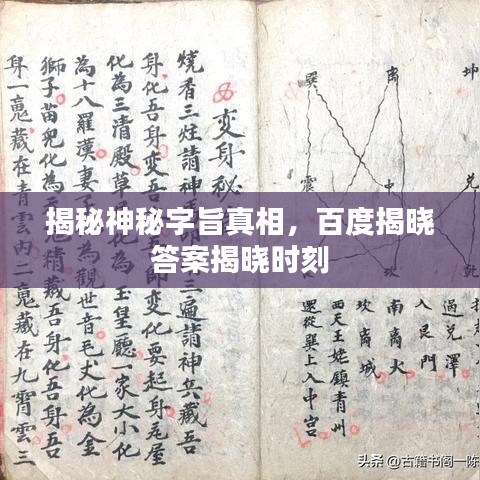 揭秘神秘字旨真相，百度揭晓
答案揭晓时刻
坤
离
巽
震
中
坎
乾
過兌澤
入艮門
南离火
坎离城
西天王姥鎮青州
還從巽上入中宮
變身秘
燒香三炷請神三遍請神兵藏吾
身化吾身變吾化變要起身瓦屋
化為三清殿草為玉皇廳一家大小化
為十八羅漢妻子為觀世音毛丈化為金
獅子苗兒化為精藏吾
身一䰟藏在青雲內二䰟藏在九霄雲三
头条 @古籍书阁一陈